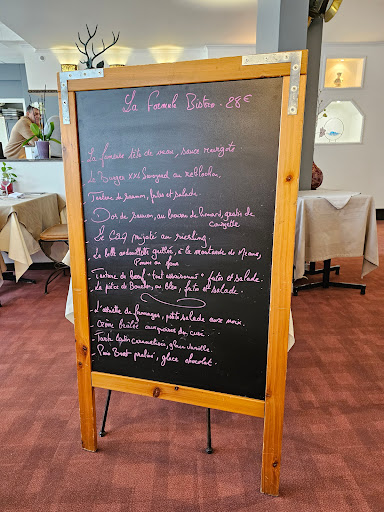 La Formule Bistro. 28€
La fameuse tête de veau, sauce
Le Burger XXL Savoyard au reblochon,
Tartare de saumon, frites et salade.
Dos de saumon, au beurre de homard, gratin de
courgette
Le Coq mijoté au riesling.
La belle andouillette grillée, à la moutarde de Meaux,
Pommes au four
Tartare de bœuf "tout assaisonné" frites et salade.
La pièce de Boucher, au bleu, frite et salade.
L'assiette de fromages, petite salade aux noix.
Crème brûlée
Tarte Tatin caramélisée, glace vanille.
Paris Brest praliné, glace chocolat.